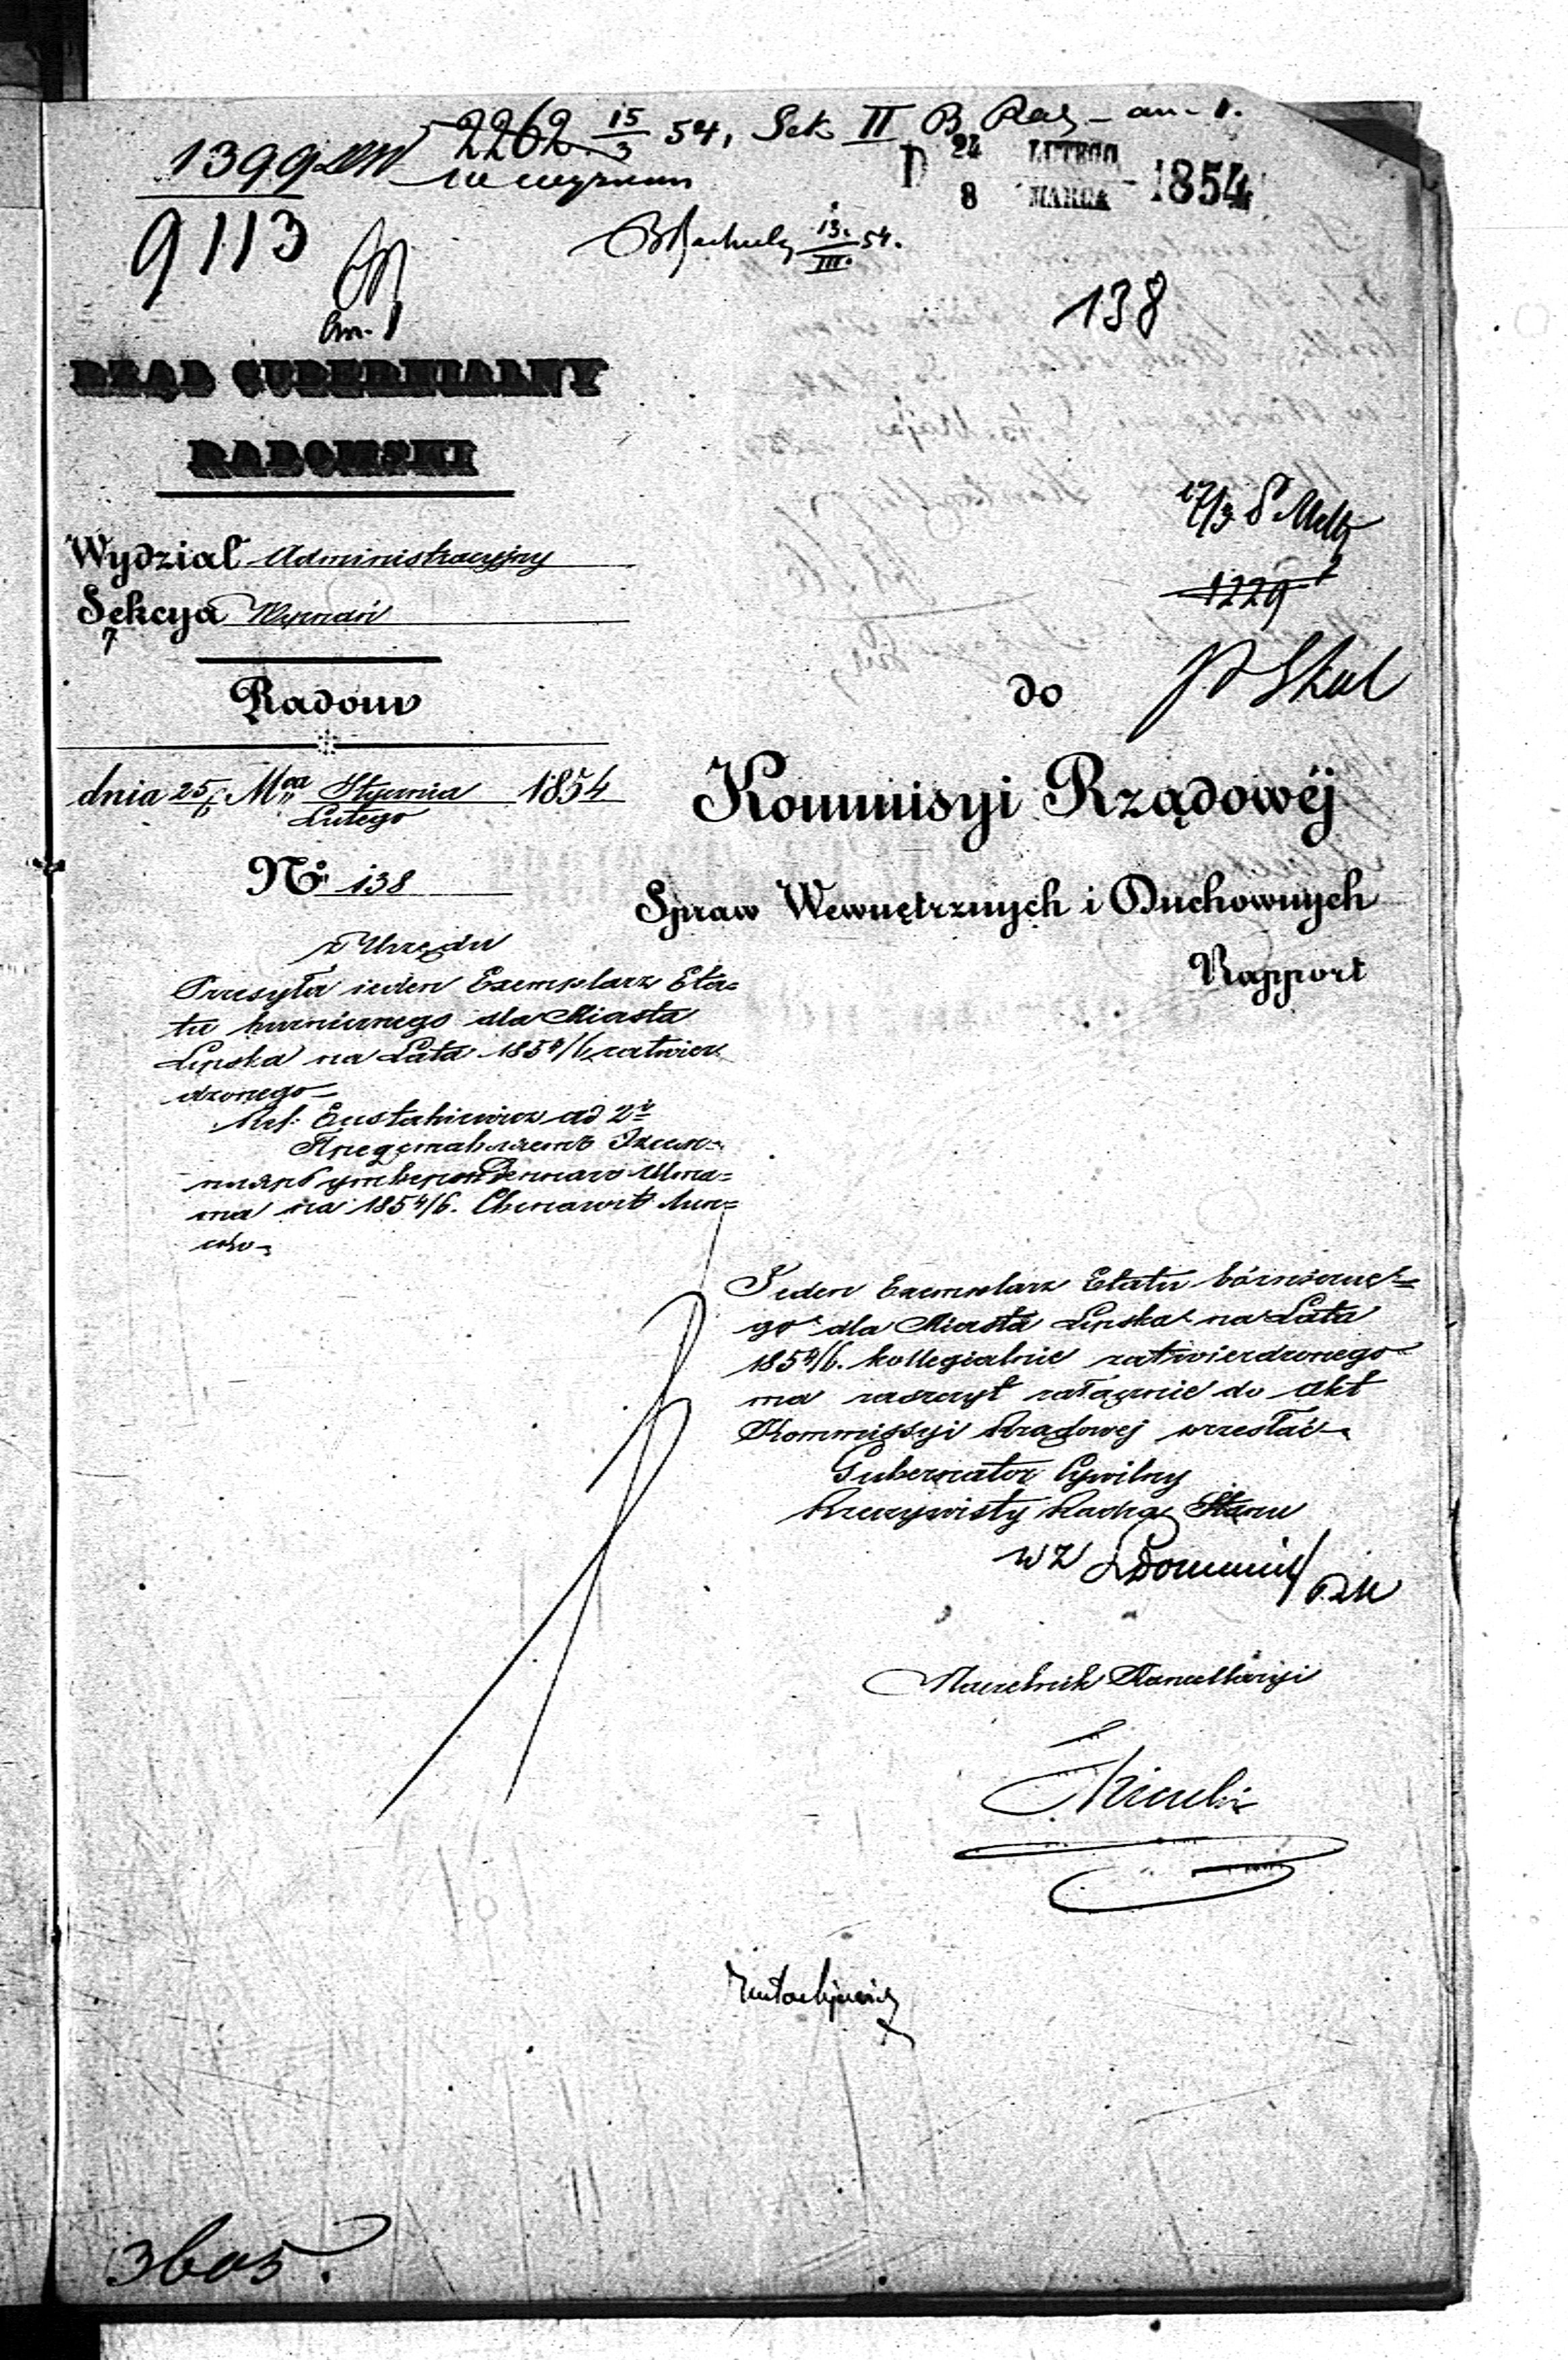 2262 15/3 54, Sek II B Rad – an. 1.
1399
9113
D 24 LUTEGO
8 MARCA 1854
13./III. 54.
138
an. 1
RZĄD GUBERNIALNY
RADOMSKI
Wydział Administracyjny
Sekcya Wyznań
Radom
dnia 25/6 Mca Stycznia 1854
Lutego
No 138
17/3
1229
do
Kommisyi Rządowéj
Spraw Wewnętrznych i Duchownych
Rapport
z Urzędu
Przesyła ieden Exemplarz Eta=
tu bużnicznego dla Miasta
Lipska na Lata 1854/6 zatwier
dzonego
Ref: Eustachiewicz ad 2
1854/6.
Jeden Exemplarz Etatu bóżniczne=
go dla Miasta Lipska na Lata
1854/6. kollegialnie zatwierdzonego
ma zaszczyt załącznie do Akt
Kommissyi Rządowej przesłać
Gubernator Cywilny
Rzeczywisty Radca Stanu
wz
Naczelnik Kancellaryi
3605.